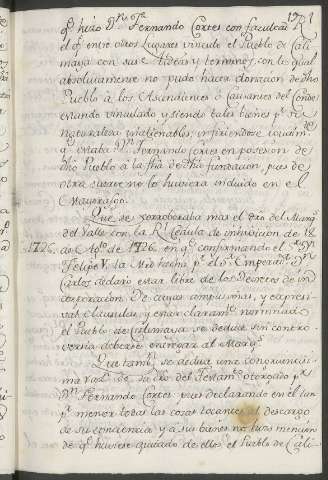 191
qe. hizo Dn. Fernando Cortes con facultad Rl.
el qe. entre otros Lugares vinculó el Pueblo de Cali
maya con sus Aldeas y terminos, con lo qual
absolutamente no pudo hacer donacion de dho
Pueblo à los Ascendientes ò Causantes del Conde
estando vinculado, y siendo tales vienes pr.
naturaleza ynalienables, infiriendose
estaba Dn. Fernando Cortes en posesion de
dho Pueblo à la fha de dha fundacion, pues de
otra suerte no lo huviera incluido en el
Mayorasgo.
Que se corroboraba mas el dro del Marqs.
del Valle con la Rl. Cedula de 18
1726. de Agto. de 1726, en qe. confirmando el Sor.
Felipe V. la Mrd hecha pr. el Sor. Emperador Dn.
Carlos declaró estar libre de los Decretos de in
corporacion De cuyas amplisimas, y expresi
vas clausulas, y estar claramte. nominado
el Pueblo de Calimaya se deducia sin contro
versia deberse entregar al Marqs.
Que tambn. se deducia una
del Testamto. otorgado pr.
Dn. Fernando Cortes, pues declarando en el
pr. menor todas las cosas tocantes al descargo
de su conciencia y à sus bienes no hizo mencion
de qe. huviese quitado de ellos el Pueblo de Cali